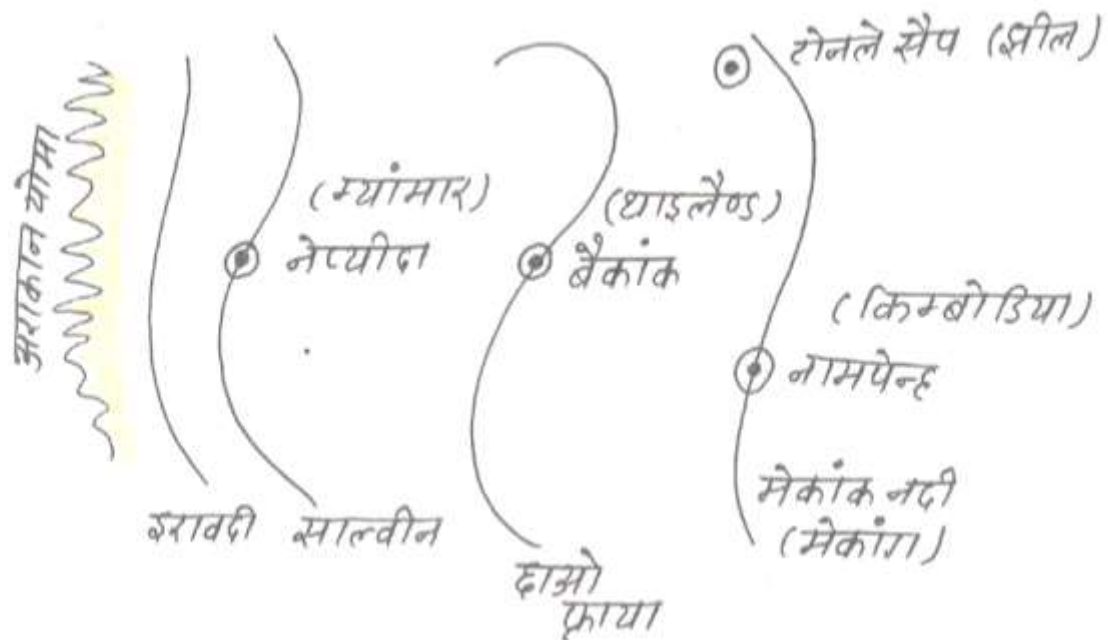 अराकान योमा
टोनले सैप (झील)
(म्यांमार)
नेप्यीदा
(थाइलैण्ड)
बैकांक
(किम्बोडिया)
नामपेन्ह
मेकांक नदी
(मेकांग)
इरावदी
साल्वीन
छाओ
फ्राया